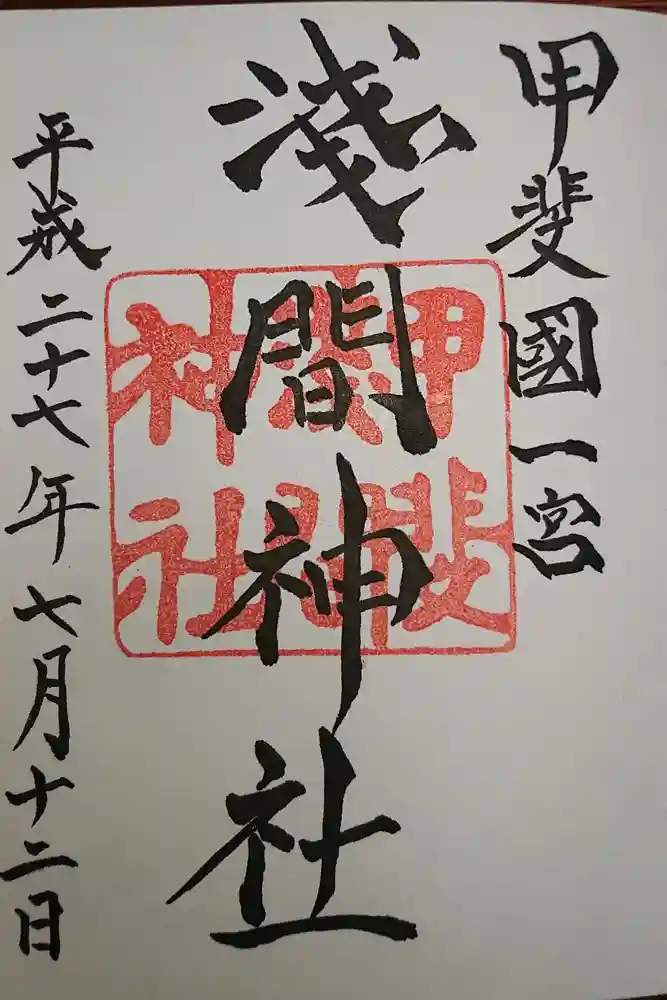 甲斐國一宮
淺間神社
甲斐
淺間
神社
平成二十七年七月十二日